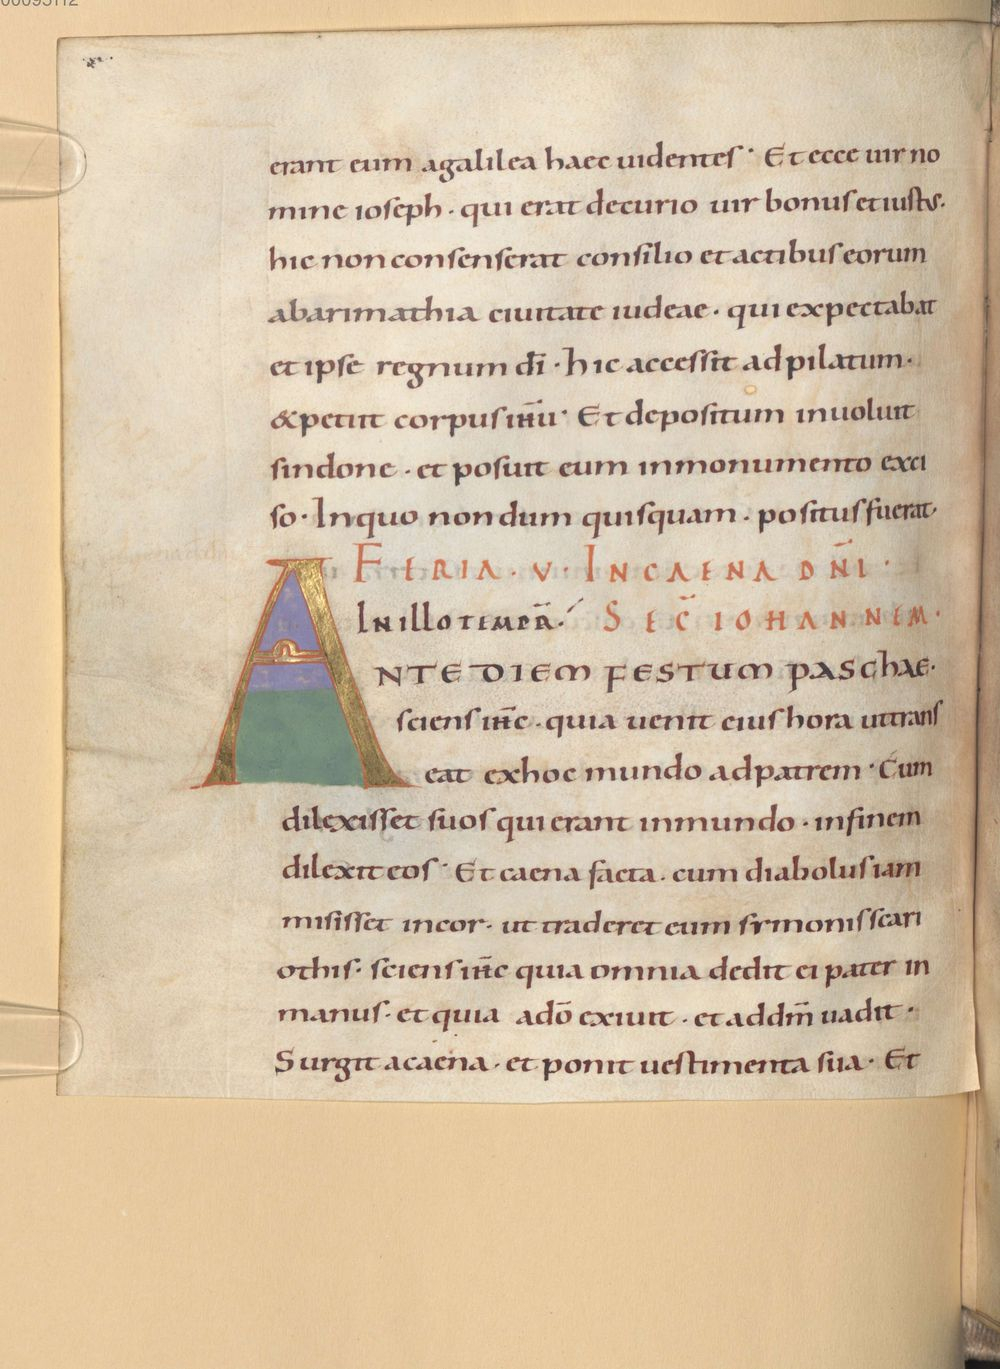 erant eum agalilea haec uidentes · Et ecce uir no
mine ioseph · qui erat decurio uir bonus et iustus ·
hic non consenserat consilio et actibus eorum
abarimathia ciuitate iudeae · qui expectabat
et ipse regnum dı̄ · hic accessit ad pilatum ·
&petiit corpus ıħū · Et depositum inuoluit
sindone · et posuit eum inmonumento exci
so · In quo non dum quisquam · positus fuerat ·
FERIA · V · IN CAENA DN̄I ·
IN illo tempr̄ · SEC̄ IOHANNEM ·
ANTE DIEM FESTUM PASCHAE ·
sciens ıħc · quia uenit eius hora ut trans
eat exhoc mundo ad patrem · Cum
dilexisset suos qui erant inmundo · infinem
dilexit eos · Et caena facta · cum diabolus iam
misisset incor · ut traderet eum symonis scari
othis · sciens ıħc quia omnia dedit ei pater in
manus · et quia adō exiuit · et addm̄ uadit ·
Surgit acaena · et ponit uestimenta sua · Et